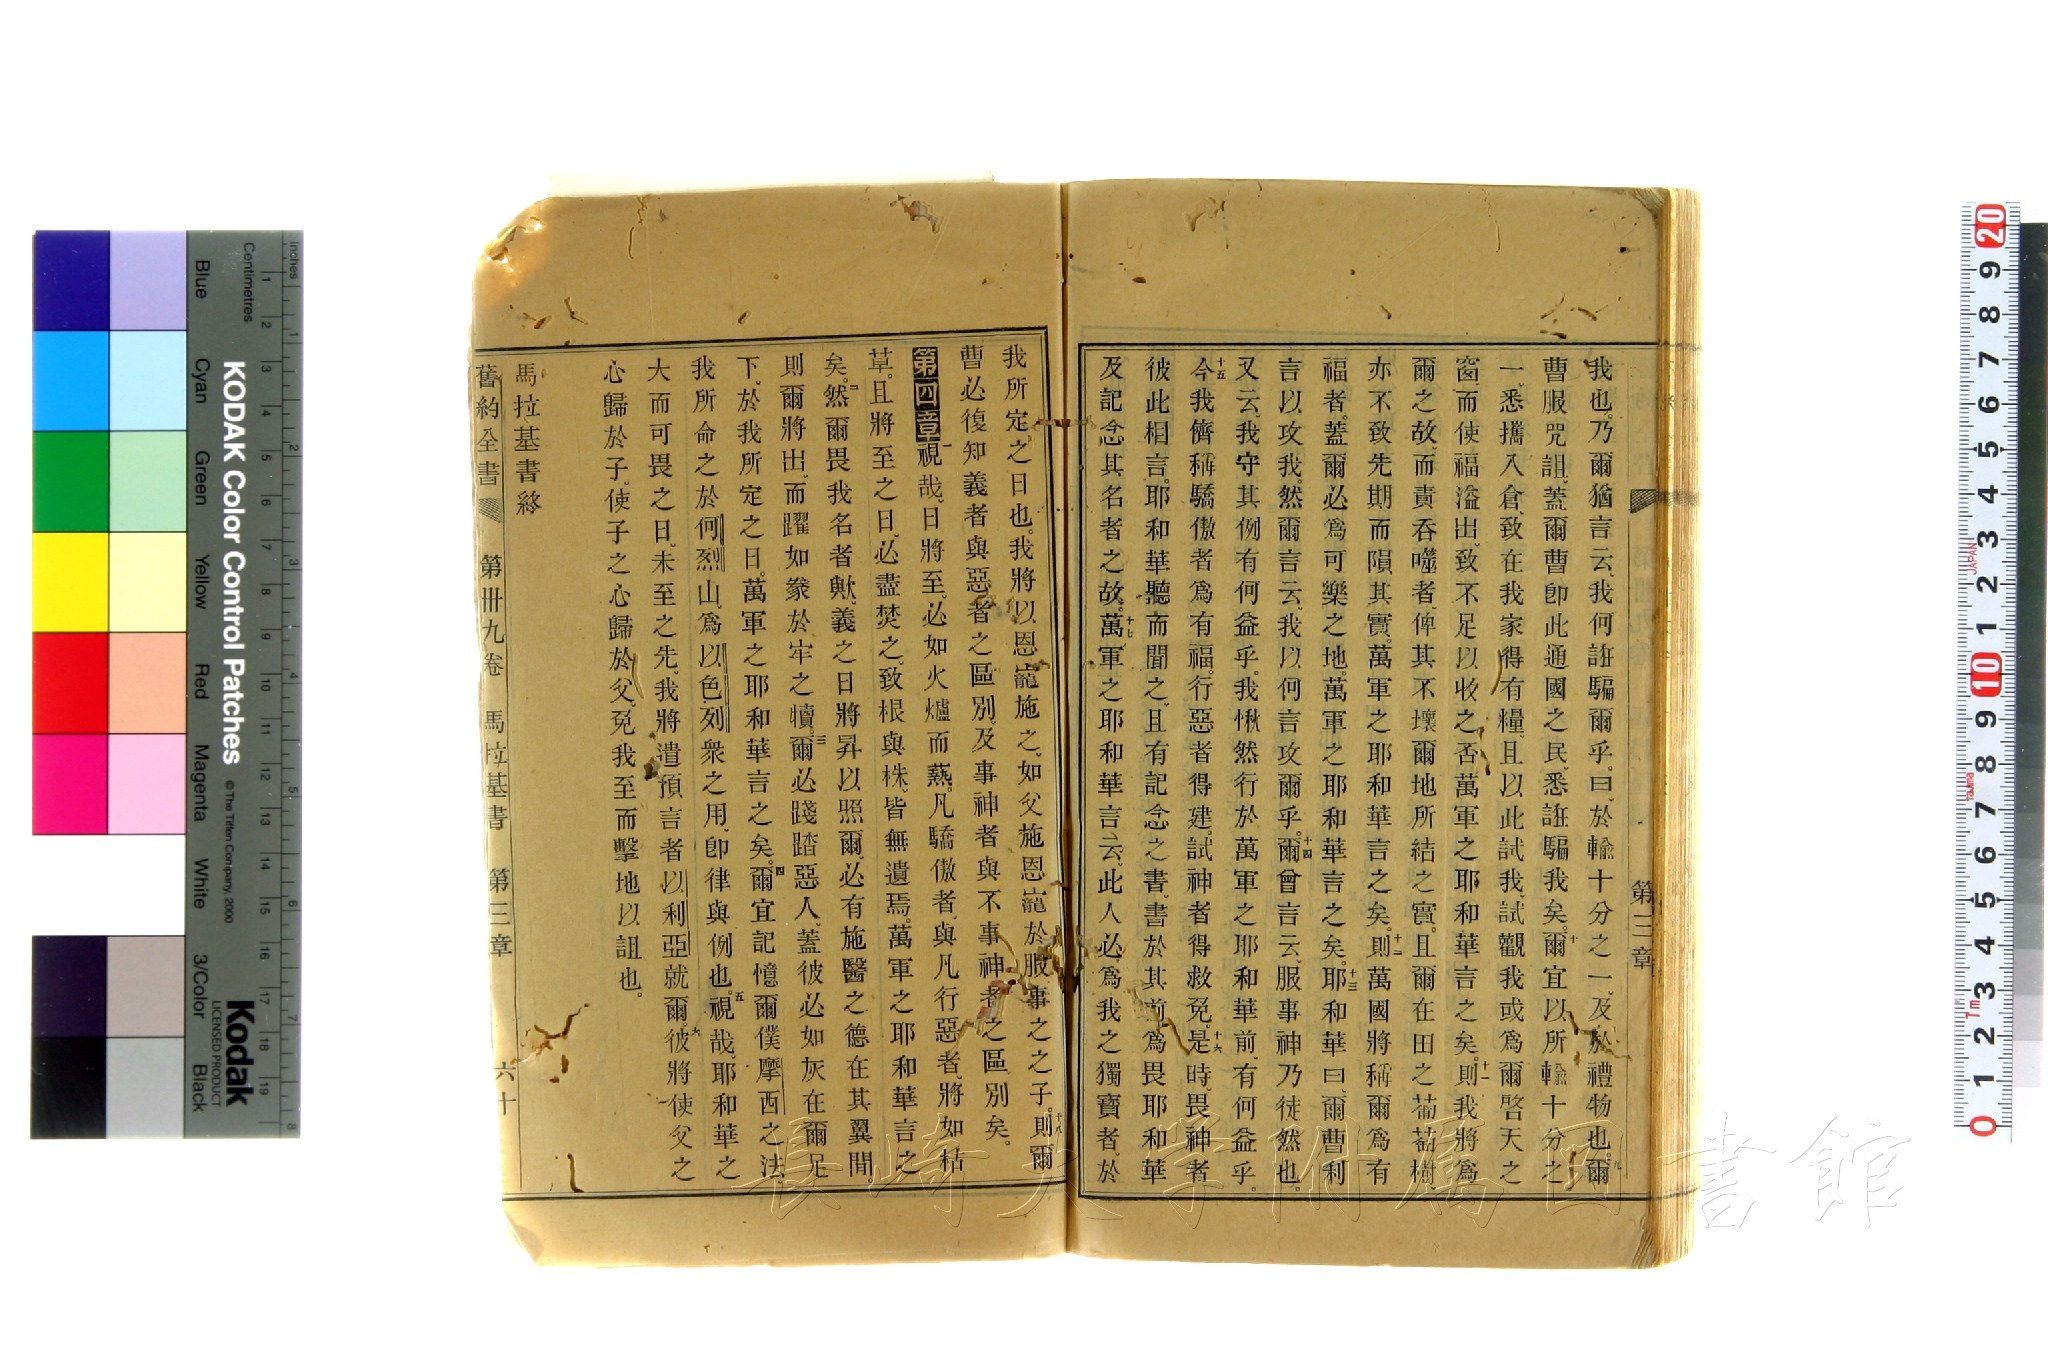 第三章
我也。乃爾猶言云、我何誑騙爾乎。曰、於輸十分之一、及於禮物也。九爾
曹服咒詛、蓋爾曹卽此通國之民、悉誑騙我矣。十爾宜以所輸十分之
一、悉攜入倉、致在我家得有糧、且以此試我、試觀我或爲爾啓天之
窗、而使福溢出、致不足以收之否、萬軍之耶和華言之矣。十一則我將爲
爾之故、而責吞噬者、俾其不壞爾地所結之實。且爾在田之葡萄樹、
亦不致先期而隕其實。萬軍之耶和華言之矣。十二則萬國將稱爾爲有
福者。蓋爾必爲可樂之地。萬軍之耶和華言之矣。十三耶和華曰、爾曹利
言以攻我。然爾言云、我以何言攻爾乎。十四爾曾言云、服事神乃徒然也。
又云、我守其例有何益乎。我愀然行於萬軍之耶和華前、有何益乎。
十五今我儕稱驕傲者爲有福。行惡者得建。試神者得救免。十六是時、畏神者
彼此相言。耶和華聽而聞之、且有記念之書、書於其前、爲畏耶和華
及記念其名者之故。十七萬軍之耶和華言云、此人必爲我之獨寶者、於
我所定之日也。我將以恩寵施之。如父施恩寵於服事之之子。十八則爾
曹必復知義者與惡者之區別、及事神者與不事神者之區別矣。
第四章一視哉、日將至、必如火爐而爇。凡驕傲者、與凡行惡者、將如枯
草。且將至之日、必盡焚之、致根與株、皆無遺焉。萬軍之耶和華言之
矣。二然爾畏我名者歟、義之日將昇以照爾、必有施醫之德在其翼間。
則爾將出、而躍如豢於牢之犢。三爾必踐踏惡人、蓋彼必如灰在爾足
下、於我所定之日。萬軍之耶和華言之矣。四爾宜記憶爾僕摩西之法、
我所命之於何烈山、爲以色列衆之用、卽律與例也。五視哉、耶和華之
大而可畏之日、未至之先、我將遣預言者以利亞就爾。六彼將使父之
心歸於子、使子之心歸於父、免我至而擊地以詛也。
馬拉基書終
舊約全書 第卅九卷 馬拉基書 第三章 六十
KODAK Color Control Patches
© The Tiffen Company, 2000
Kodak
LICENSED PRODUCT
Inches
Centimetres
Blue
Cyan
Green
Yellow
Red
Magenta
White
3/Color
Black
1 2 3 4 5 6 7 8
1 2 3 4 5 6 7 8 9 10 11 12 13 14 15 16 17 18 19
20 9 8 7 6 5 4 3 2 1 10 9 8 7 6 5 4 3 2 1 0
JAPAN
Tajima
Tm
長崎大学附属図書館